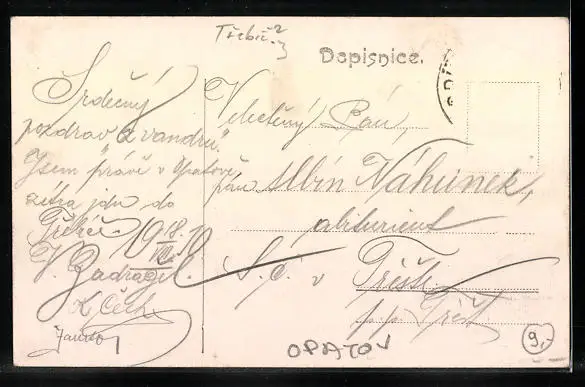 Třebíč?
Dopisnice.
Srdečný
pozdrav "z vandru".
Jsem právě v Opatově
zítra jdu do
1918
V. Zadražil.
K. Čech
Velectěný Pán,
pán Albín Náhunek,
abiturient
v Třešti
p. p. Třešť
OPATOV
9,-